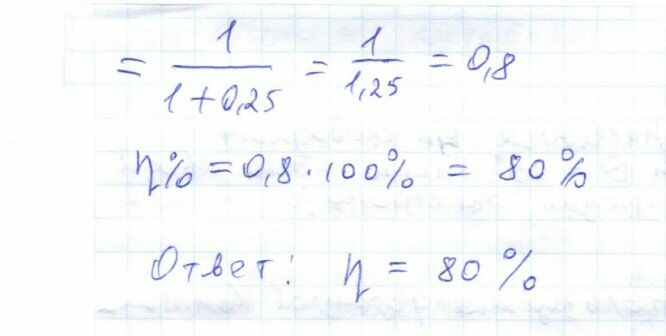 = 1/(1+0,25) = 1/1,25 = 0,8
η% = 0,8 · 100% = 80%
Ответ: η = 80%